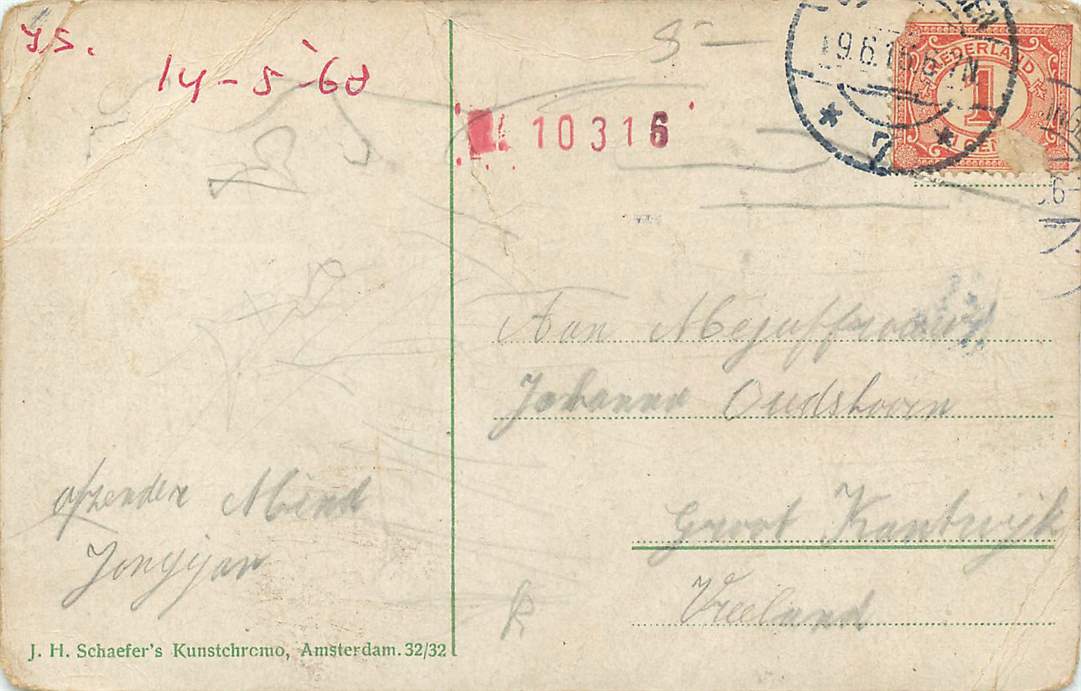 14-5-60
10316
NEDERLAND
1
Aan Mejuffrouw
Johanna Oudshoorn
Groot Kantwijk
Vreeland
afzender Mind
J. H. Schaefer's Kunstchromo, Amsterdam. 32/32